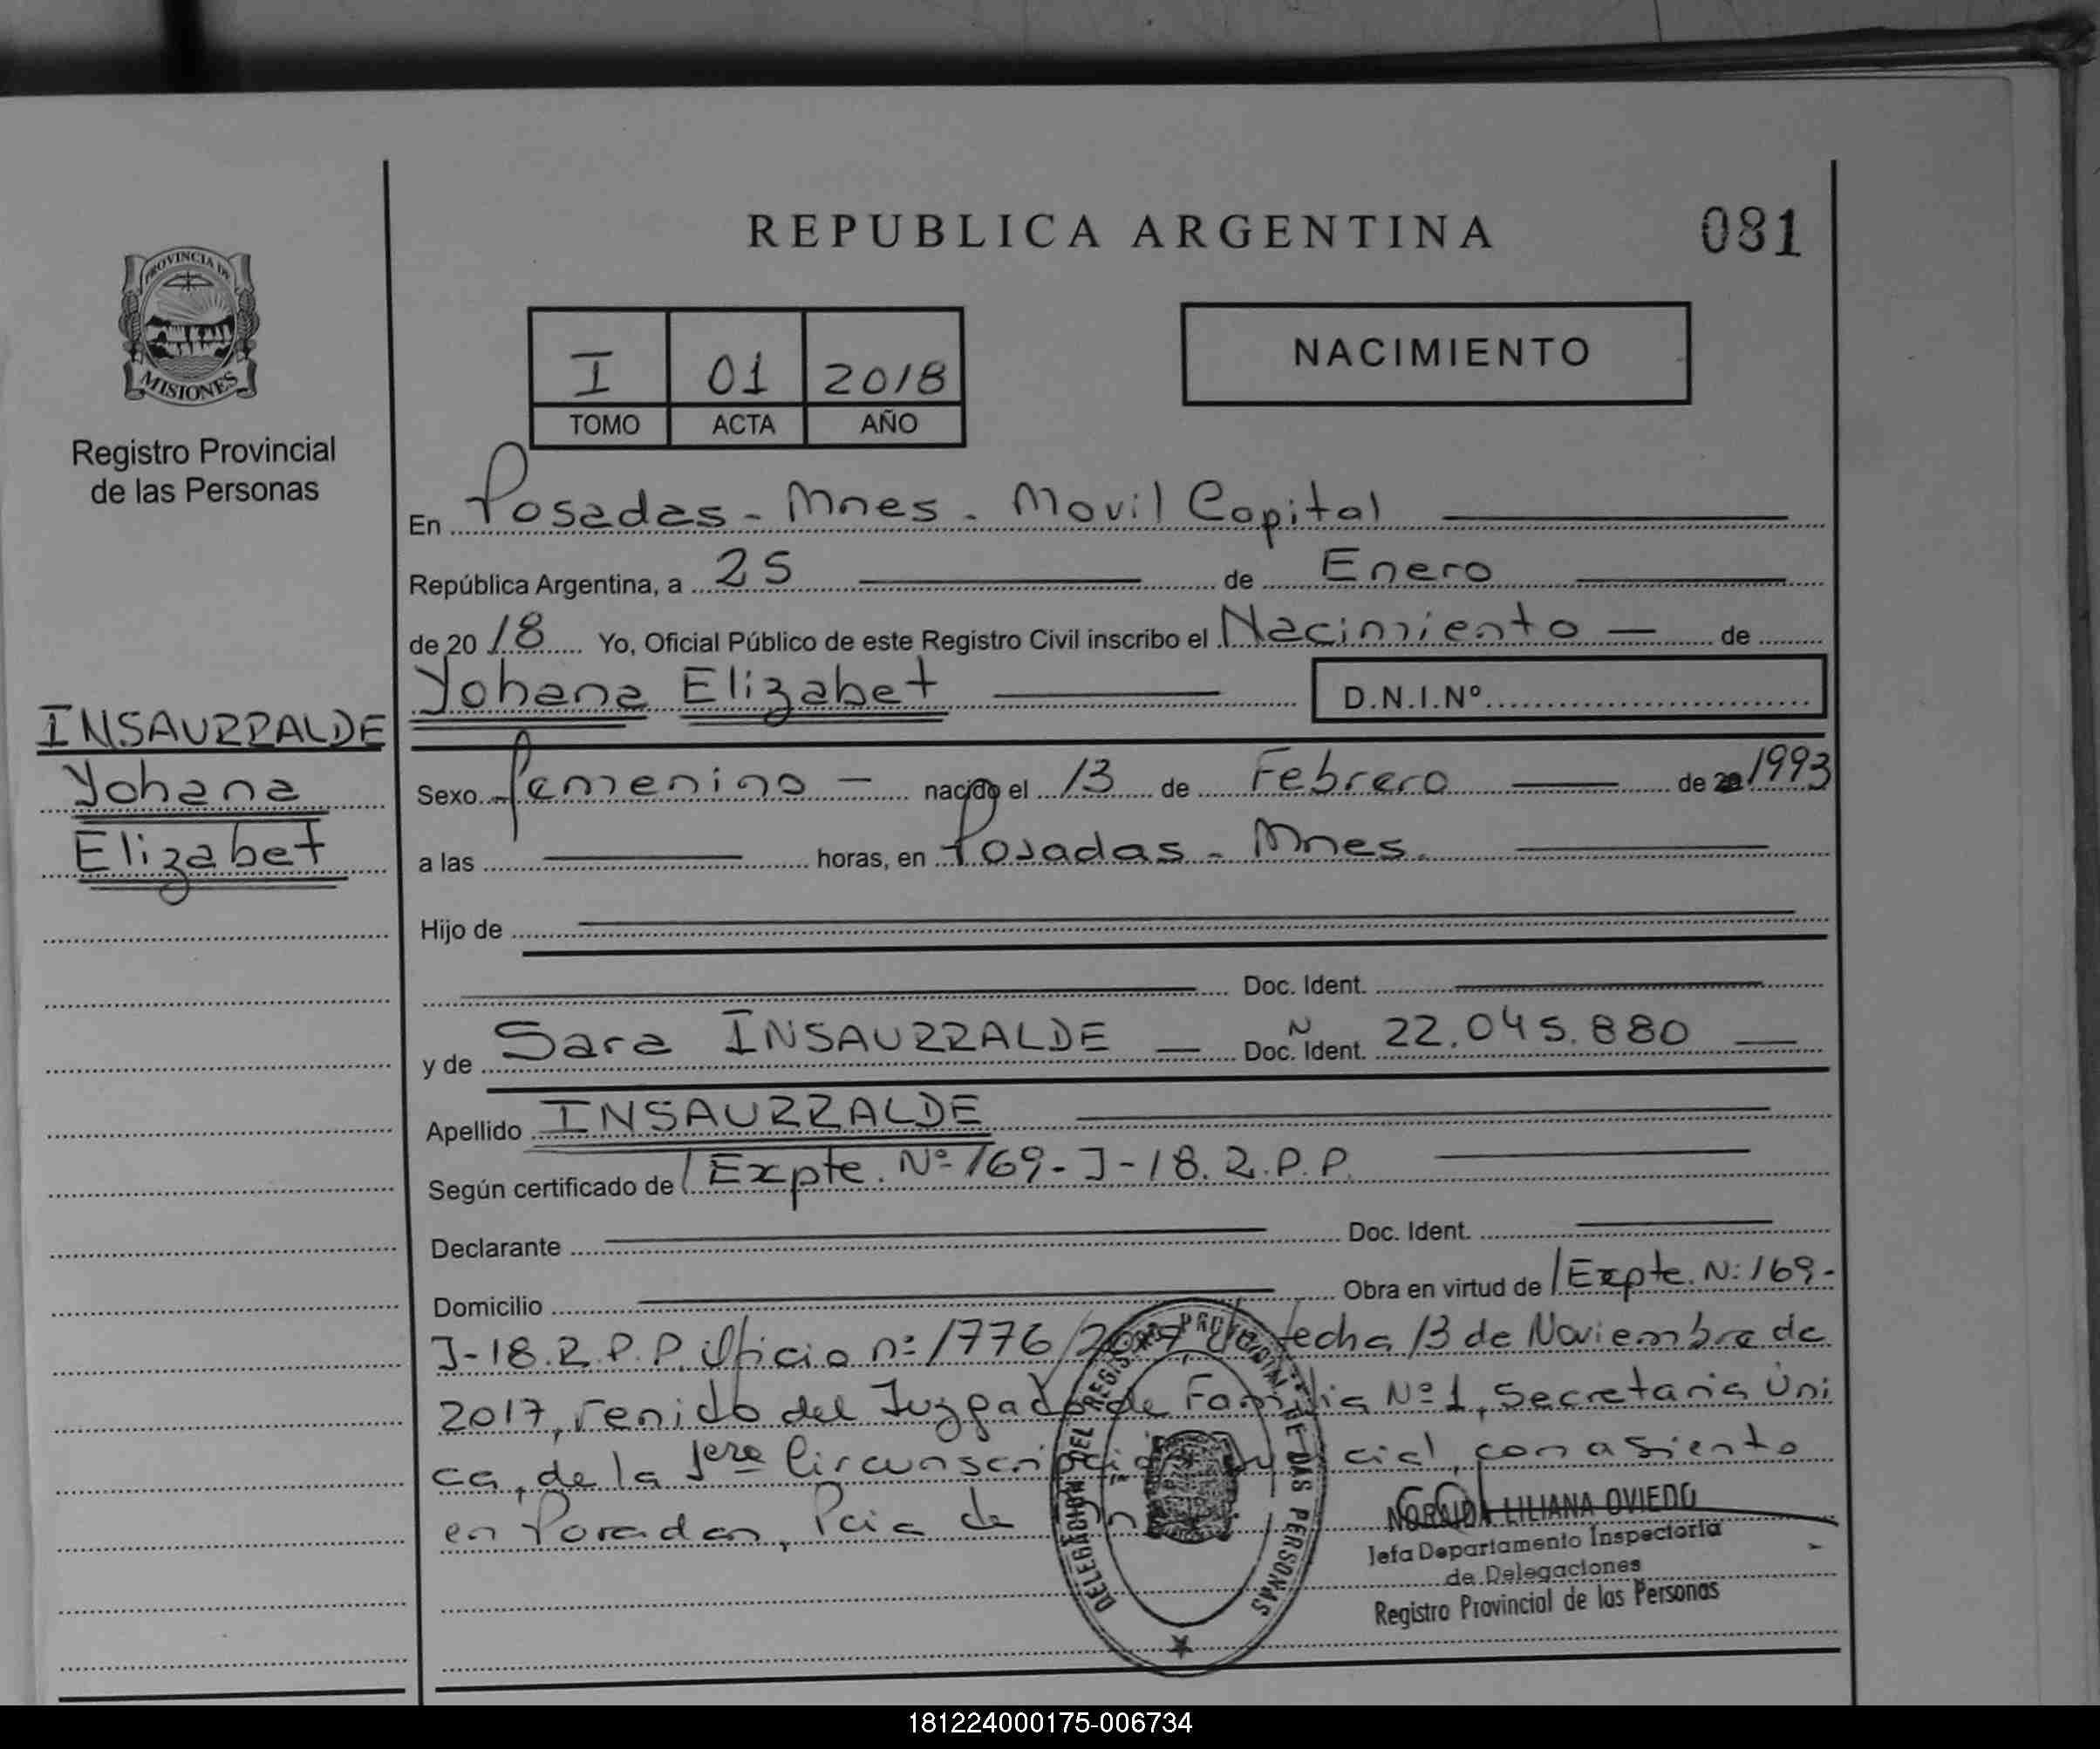 REPUBLICA ARGENTINA
081
PROVINCIA DE
MISIONES
Registro Provincial
de las Personas
I 01 2018
TOMO ACTA AÑO
NACIMIENTO
En Posadas - Mnes - Movil Capital
República Argentina, a 25 de Enero
de 20 18 Yo, Oficial Público de este Registro Civil inscribo el Nacimiento - de
Yohana Elizabet D.N.I.Nº
INSAURRALDE
Yohana
Elizabet
Sexo femenino - nacido el 13 de Febrero de 1993
a las horas, en Posadas - Mnes.
Hijo de
Doc. Ident.
y de Sara INSAURRALDE - Doc. Ident. Nº 22.045.880
Apellido INSAURRALDE
Según certificado de Expte. Nº 169-I-18.R.P.P.
Declarante Doc. Ident.
Domicilio Obra en virtud de Expte. N: 169-
I-18.R.P.P. Oficio nº 1776/2017, de fecha 13 de Noviembre de
2017, venido del Juzgado de Familia Nº 1, Secretaria Uni
ca, de la 1era Circunscripción Judicial, con asiento
en Posadas, Pcia de
DELEGACION DEL REGISTRO PROVINCIAL DE LAS PERSONAS
NORAIDA LILIANA OVIEDO
Jefa Departamento Inspectoria
de Delegaciones
Registro Provincial de las Personas
181224000175-006734